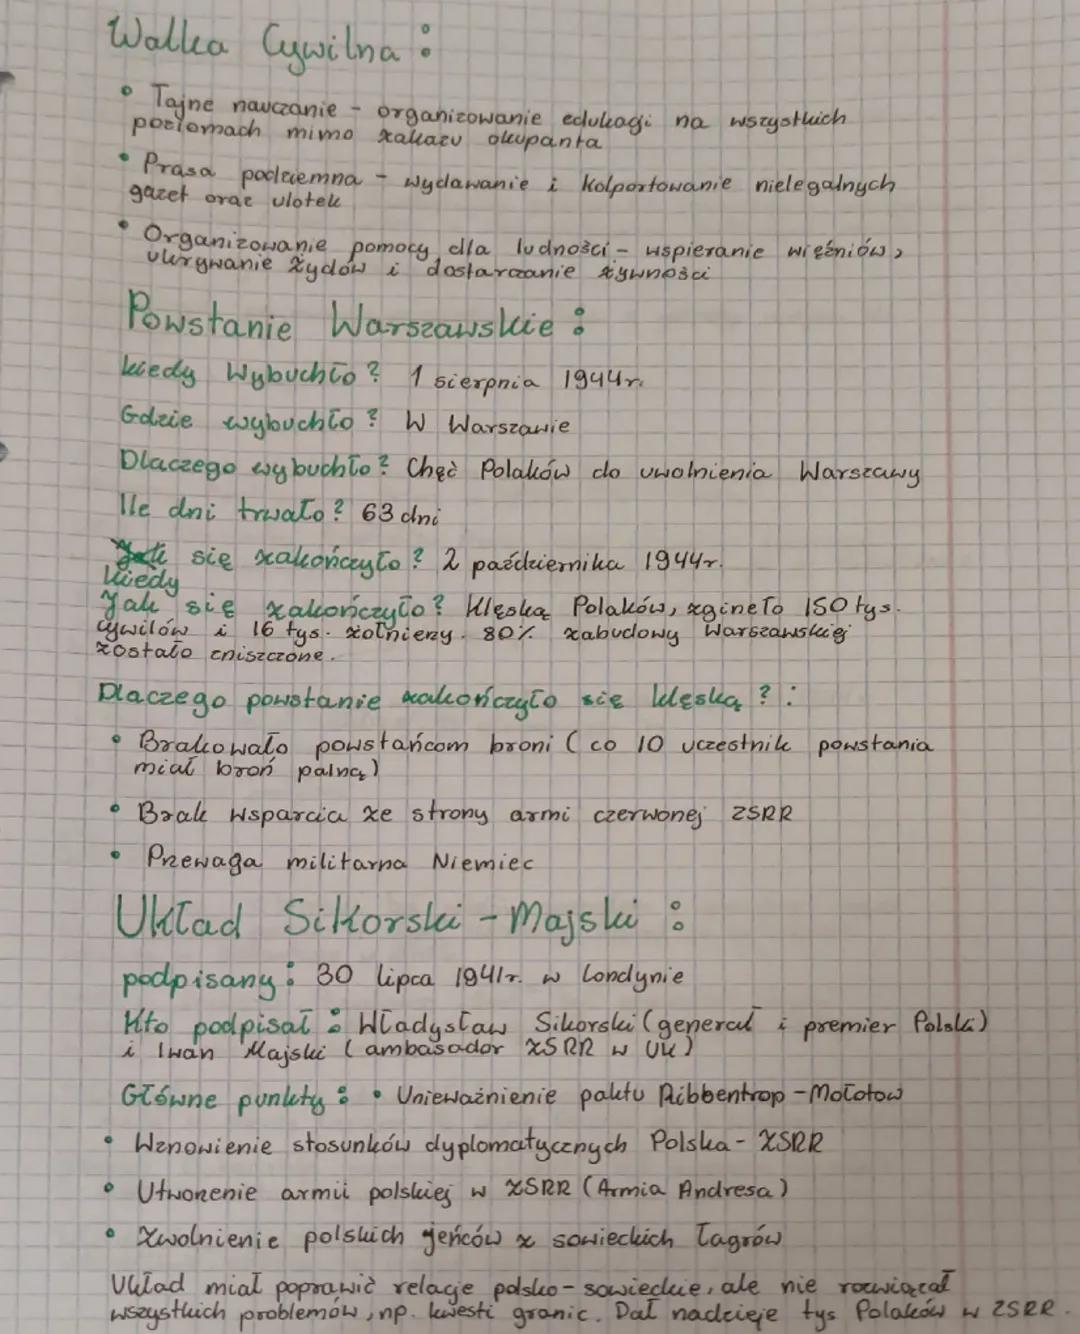 Walka Cywilna :
• Tajne nauczanie - organizowanie edukacji na wszystkich
poziomach mimo zakazu okupanta
• Prasa podziemna - wydawanie i kolportowanie nielegalnych
gazet oraz ulotek
• Organizowanie pomocy dla ludności - wspieranie więźniów,
ukrywanie Żydów i dostarczanie żywności
Powstanie Warszawskie :
kiedy Wybuchło? 1 sierpnia 1944r.
Gdzie wybuchło? W Warszawie
Dlaczego wybuchło? Chęć Polaków do uwolnienia Warszawy
Ile dni trwało? 63 dni
Jak się zakończyło? 2 października 1944r.
kiedy
Jak się zakończyło? Klęską Polaków, zgineło 150 tys.
cywilów i 16 tys. żołnierzy. 80% zabudowy Warszawskiej
zostało zniszczone.
Dlaczego powstanie zakończyło się klęską ? :
• Brakowało powstańcom broni ( co 10 uczestnik powstania
miał broń palną)
• Brak wsparcia ze strony armi czerwonej ZSRR
• Przewaga militarna Niemiec
Układ Sikorski - Majski :
podpisany : 30 lipca 1941r. w Londynie
Kto podpisał : Władysław Sikorski (generał i premier Polski)
i Iwan Majski ( ambasador ZSRR w UK)
Główne punkty : • Unieważnienie paktu Ribbentrop - Mołotow
• Wznowienie stosunków dyplomatycznych Polska - ZSRR
• Utworzenie armii polskiej w ZSRR (Armia Andresa)
• Zwolnienie polskich jeńców z sowieckich łagrów
Układ miał poprawić relacje polsko - sowieckie, ale nie rozwiązał
wszystkich problemów, np. kwesti granic. Dał nadzieje tys Polaków w ZSRR.